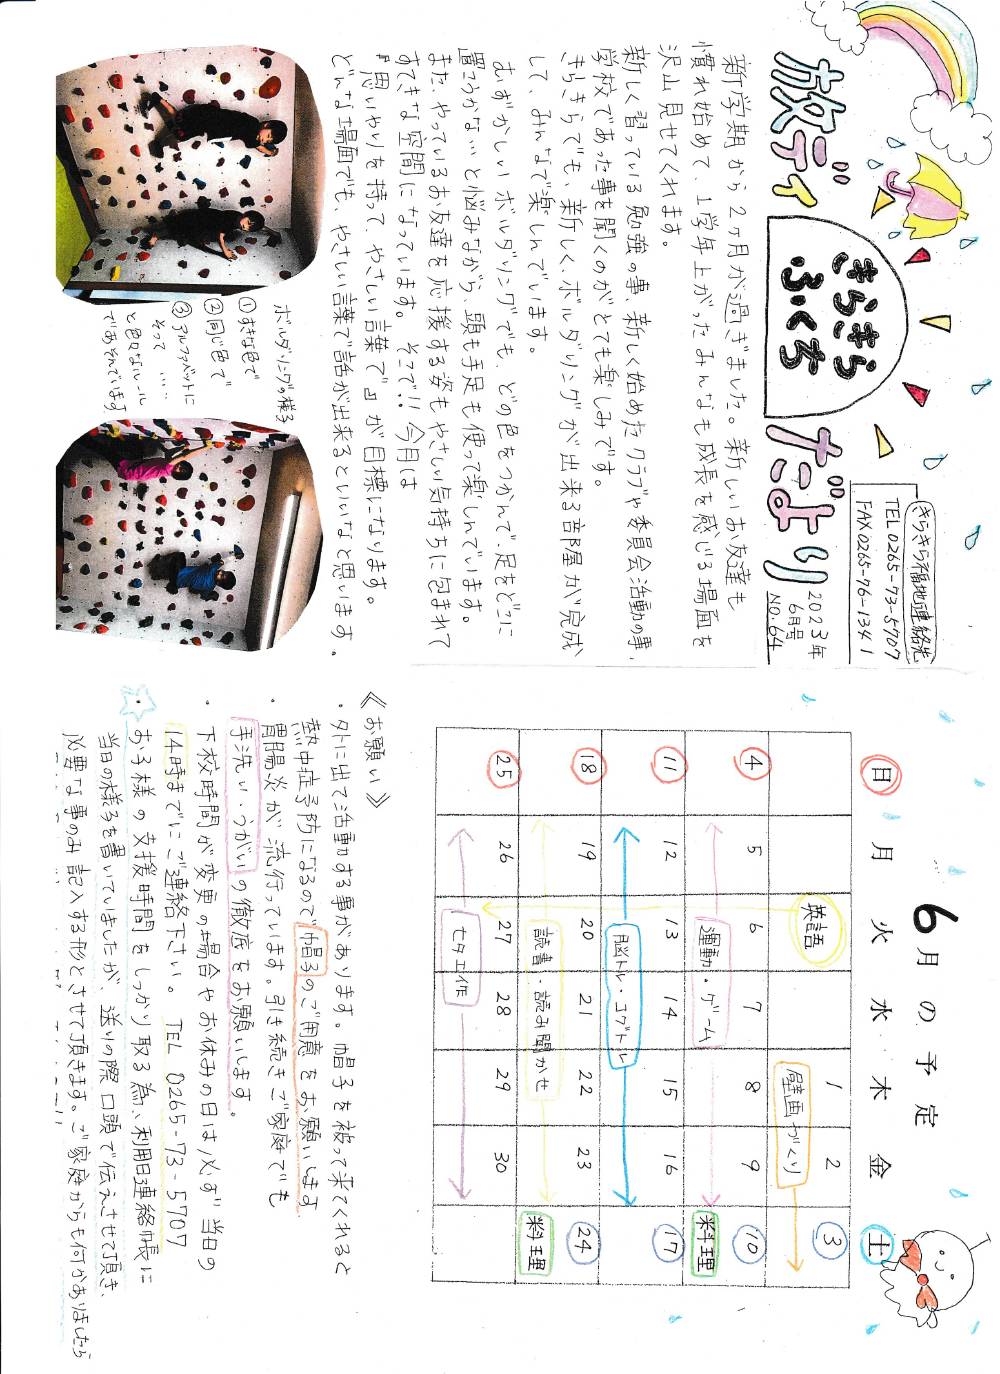 放デイ
きらきら
ふくち
だより
2023年
6月号
NO.64
きらきら福地連絡先
TEL 0265-73-5707
FAX 0265-76-1341
新学期から2ヶ月が過ぎました。新しいお友達も
慣れ始めて、1学年上がったみんなも成長を感じる場面を
沢山見せてくれます。
新しく習っている勉強の事、新しく始めたクラブや委員会活動の事、
学校であった事を聞くのがとても楽しみです。
きらきらでも、新しく、ボルダリングが出来る部屋が完成
して、みんなで楽しんでいます。
むずかしいボルダリングでも、どの色をつかんで、足をどこに
置こうかな…と悩みながら、頭も手足も使って楽しんでいます。
また、やっているお友達を応援する姿もやさしい気持ちに包まれて
すてきな空間になっています。そこで!!今月は
『思いやりを持って、やさしい言葉で』が目標になります。
どんな場面でも、やさしい言葉で話が出来るといいなと思います。
ボルダリングの様子
①すきな色で
②同じ色で
③アルファベットに
そって……
と色々なルール
であそんでいます
6月の予定
日 月 火 水 木 金 土
英語 1 2 3
壁画づくり
4 5 6 7 8 9 10
運動・ゲーム 料理
11 12 13 14 15 16 17
脳トレ・コグトレ
18 19 20 21 22 23 24
読書・読み聞かせ 料理
25 26 27 28 29 30
七夕工作
《お願い》
・外に出て活動する事があります。帽子を被って来てくれると
熱中症予防になるので帽子のご用意をお願いします
・胃腸炎が流行っています。引き続きご家庭でも
手洗い・うがいの徹底をお願いします。
・下校時間が変更の場合やお休みの日は必ず当日の
14時までにご連絡下さい。 TEL 0265-73-5707
☆お子様の支援時間をしっかり取る為、利用日連絡帳に
当日の様子を書いていましたが、送りの際口頭で伝えさせて頂き、
必要な事のみ記入する形とさせて頂きます。ご家庭からも何かありましたら